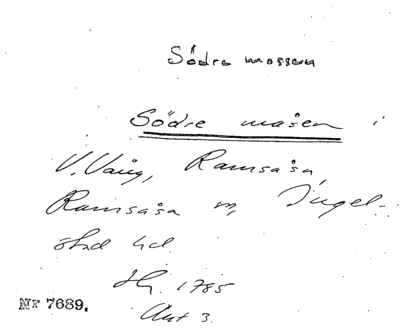 Södre mossen
Södre måsen i
V. Vång, Ramsåsa,
Ramsåsa sn, Ingel-
stad hd.
Hy. 1785
Akt 3.
Nr 7689.